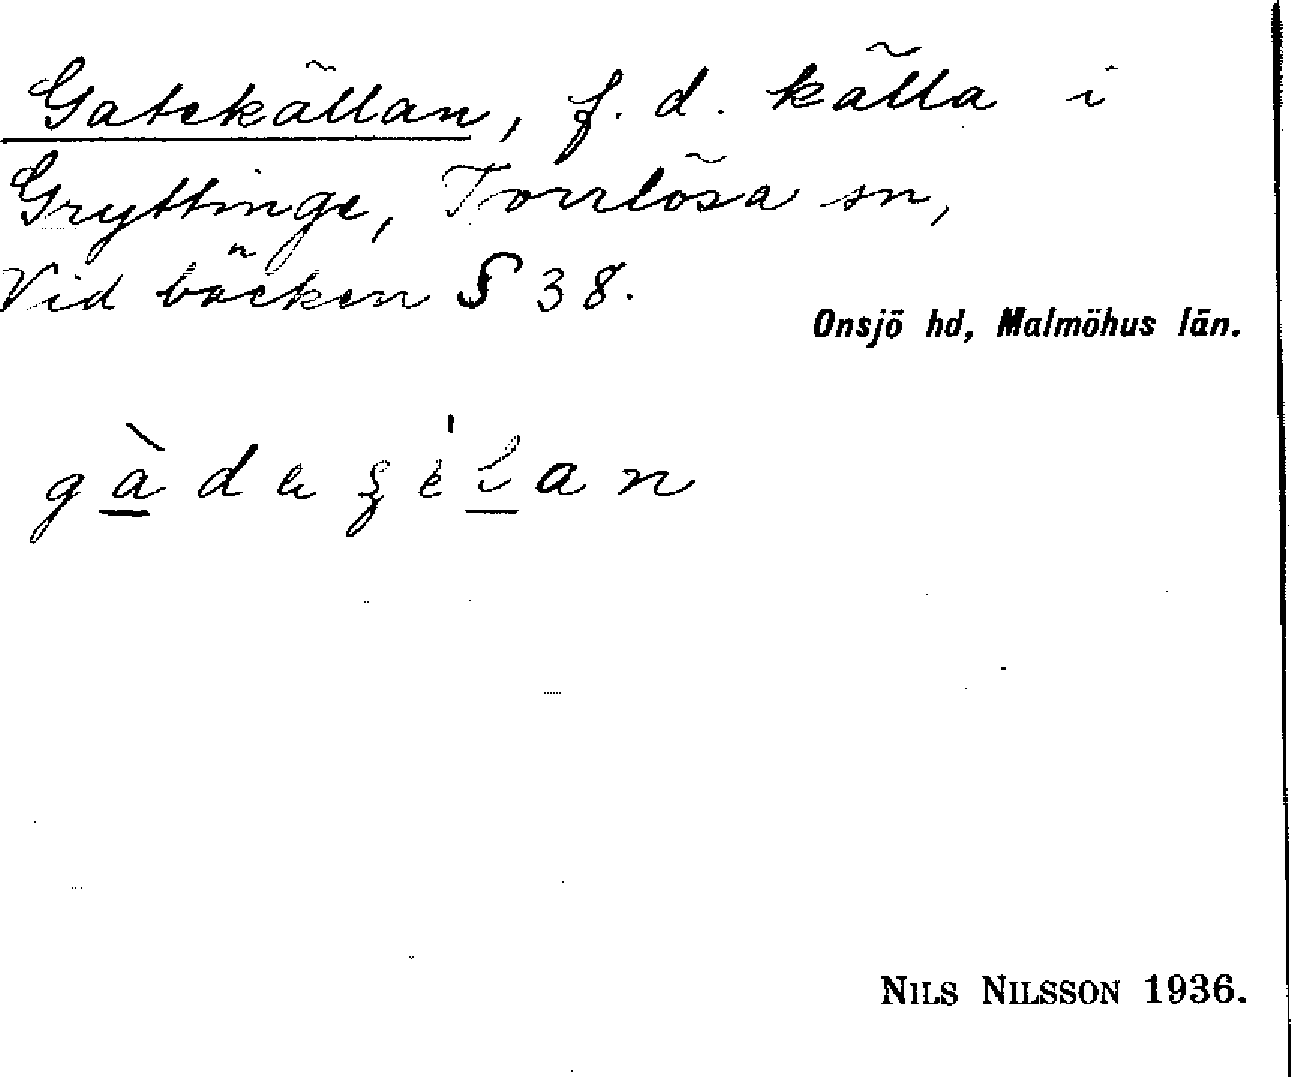 Gatekällan, f. d. källa i
Gryttinge, Torrlösa sn,
Vid bäcken § 38.
Onsjö hd, Malmöhus län.
NILS NILSSON 1936.